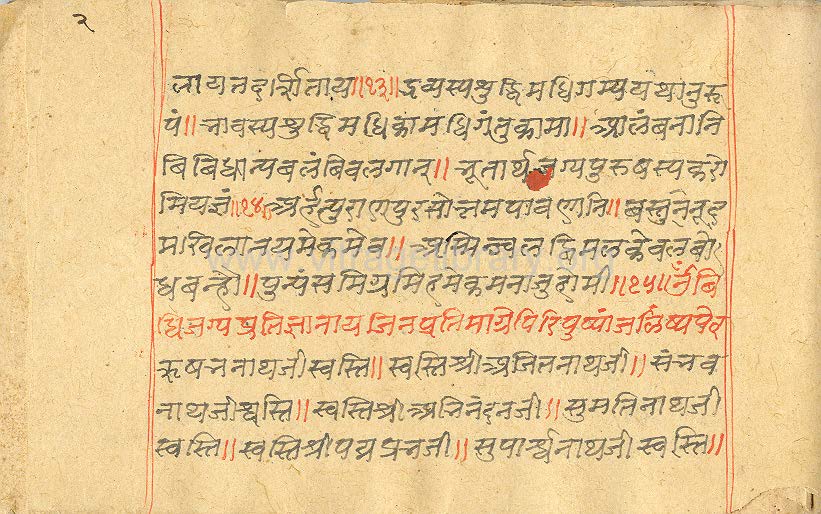 २
लायतद्दर्शिताय॥१३॥द्रव्यस्यशुद्धिमधिगम्ययथानुरू
पं॥भावस्यशुद्धिमधिकामधिगंतुकामा॥आलंबनानि
बिबिधान्यबलंबिवलगान्॥भूतार्थजग्यपुरुषस्यकरो
मियज्ञं॥१४॥अर्हत्पुराणपुरसोत्तमपावणानि॥बस्तुनेनूद
माखिलानयमेकमेव॥अस्मिन्ज्वलद्दिमलकेवलबो
धबन्हो॥पुन्यंसमिग्रमिदमेकमनाजुहोमी॥१५॥नुंबि
धिजग्यप्रतिज्ञानायजिनप्रतिमाग्रेपिरिपुष्पांजलिंष्यपेत्
ऋषभनाथजीस्वस्ति॥स्वस्तिश्रीअजितनाथजी॥संभव
नाथजीस्वस्ति॥स्वस्तिश्रीअभिनंदनजी॥सुमतिनाथजी
स्वस्ति॥स्वस्तिश्रीपद्मप्रभजी॥सुपार्श्वनाथजीस्वस्ति॥